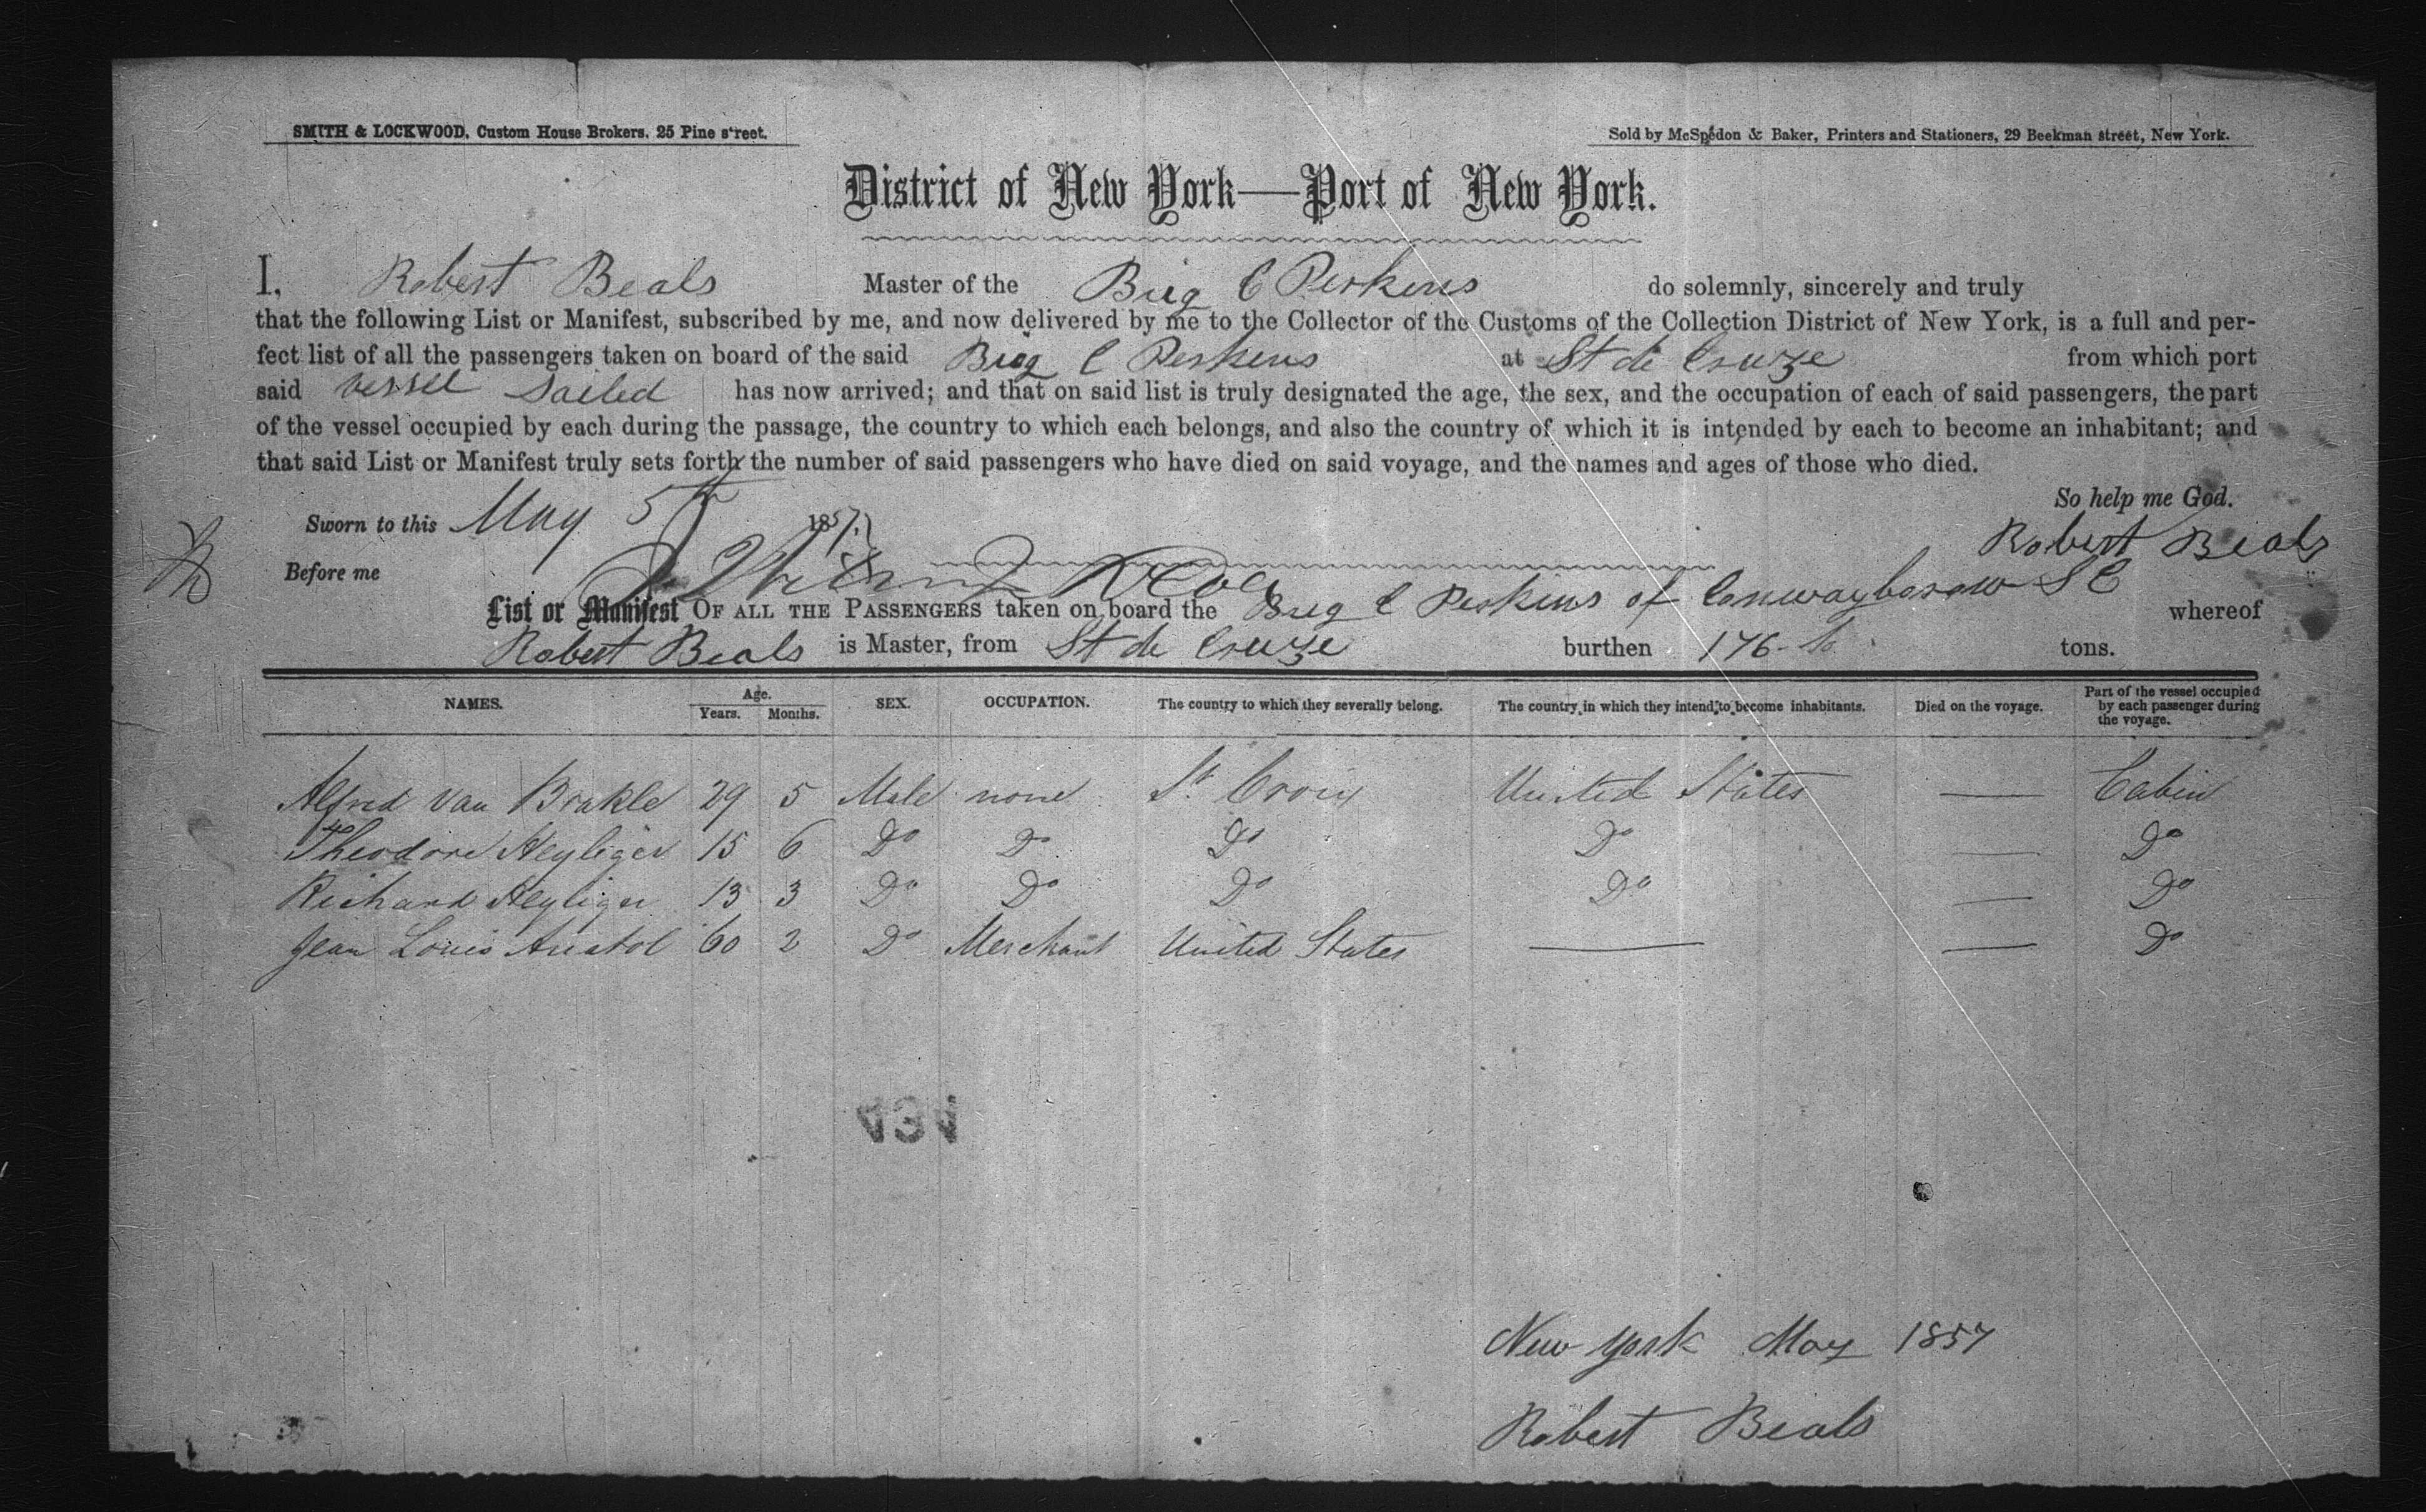 SMITH & LOCKWOOD, Custom House Brokers, 25 Pine street.
Sold by McSpedon & Baker, Printers and Stationers, 29 Beekman street, New York.
District of New York—Port of New York.
I, Robert Beals Master of the Brig C Perkins do solemnly, sincerely and truly
that the following List or Manifest, subscribed by me, and now delivered by me to the Collector of the Customs of the Collection District of New York, is a full and per-
fect list of all the passengers taken on board of the said Brig C Perkins at St de Cruze from which port
said vessel Sailed has now arrived; and that on said list is truly designated the age, the sex, and the occupation of each of said passengers, the part
of the vessel occupied by each during the passage, the country to which each belongs, and also the country of which it is intended by each to become an inhabitant; and
that said List or Manifest truly sets forth the number of said passengers who have died on said voyage, and the names and ages of those who died.
So help me God.
Sworn to this May 5th 1857.
Robert Beals
Before me
List or Manifest OF ALL THE PASSENGERS taken on board the Brig C Perkins of Conwayborow S C whereof
Robert Beals is Master, from St de Cruze burthen 176 tons.
NAMES. Age. Years. Months. SEX. OCCUPATION. The country to which they severally belong. The country in which they intend to become inhabitants. Died on the voyage. Part of the vessel occupied by each passenger during the voyage.
Alfred Van Brakle 29 5 Male none St Croix United States — Cabin
Theodore Heyliger 15 6 Do Do Do Do — Do
Richard Heyliger 13 3 Do Do Do Do — Do
Jean Louis Anatol 60 2 Do Merchant United States — — Do
New York May 1857
Robert Beals